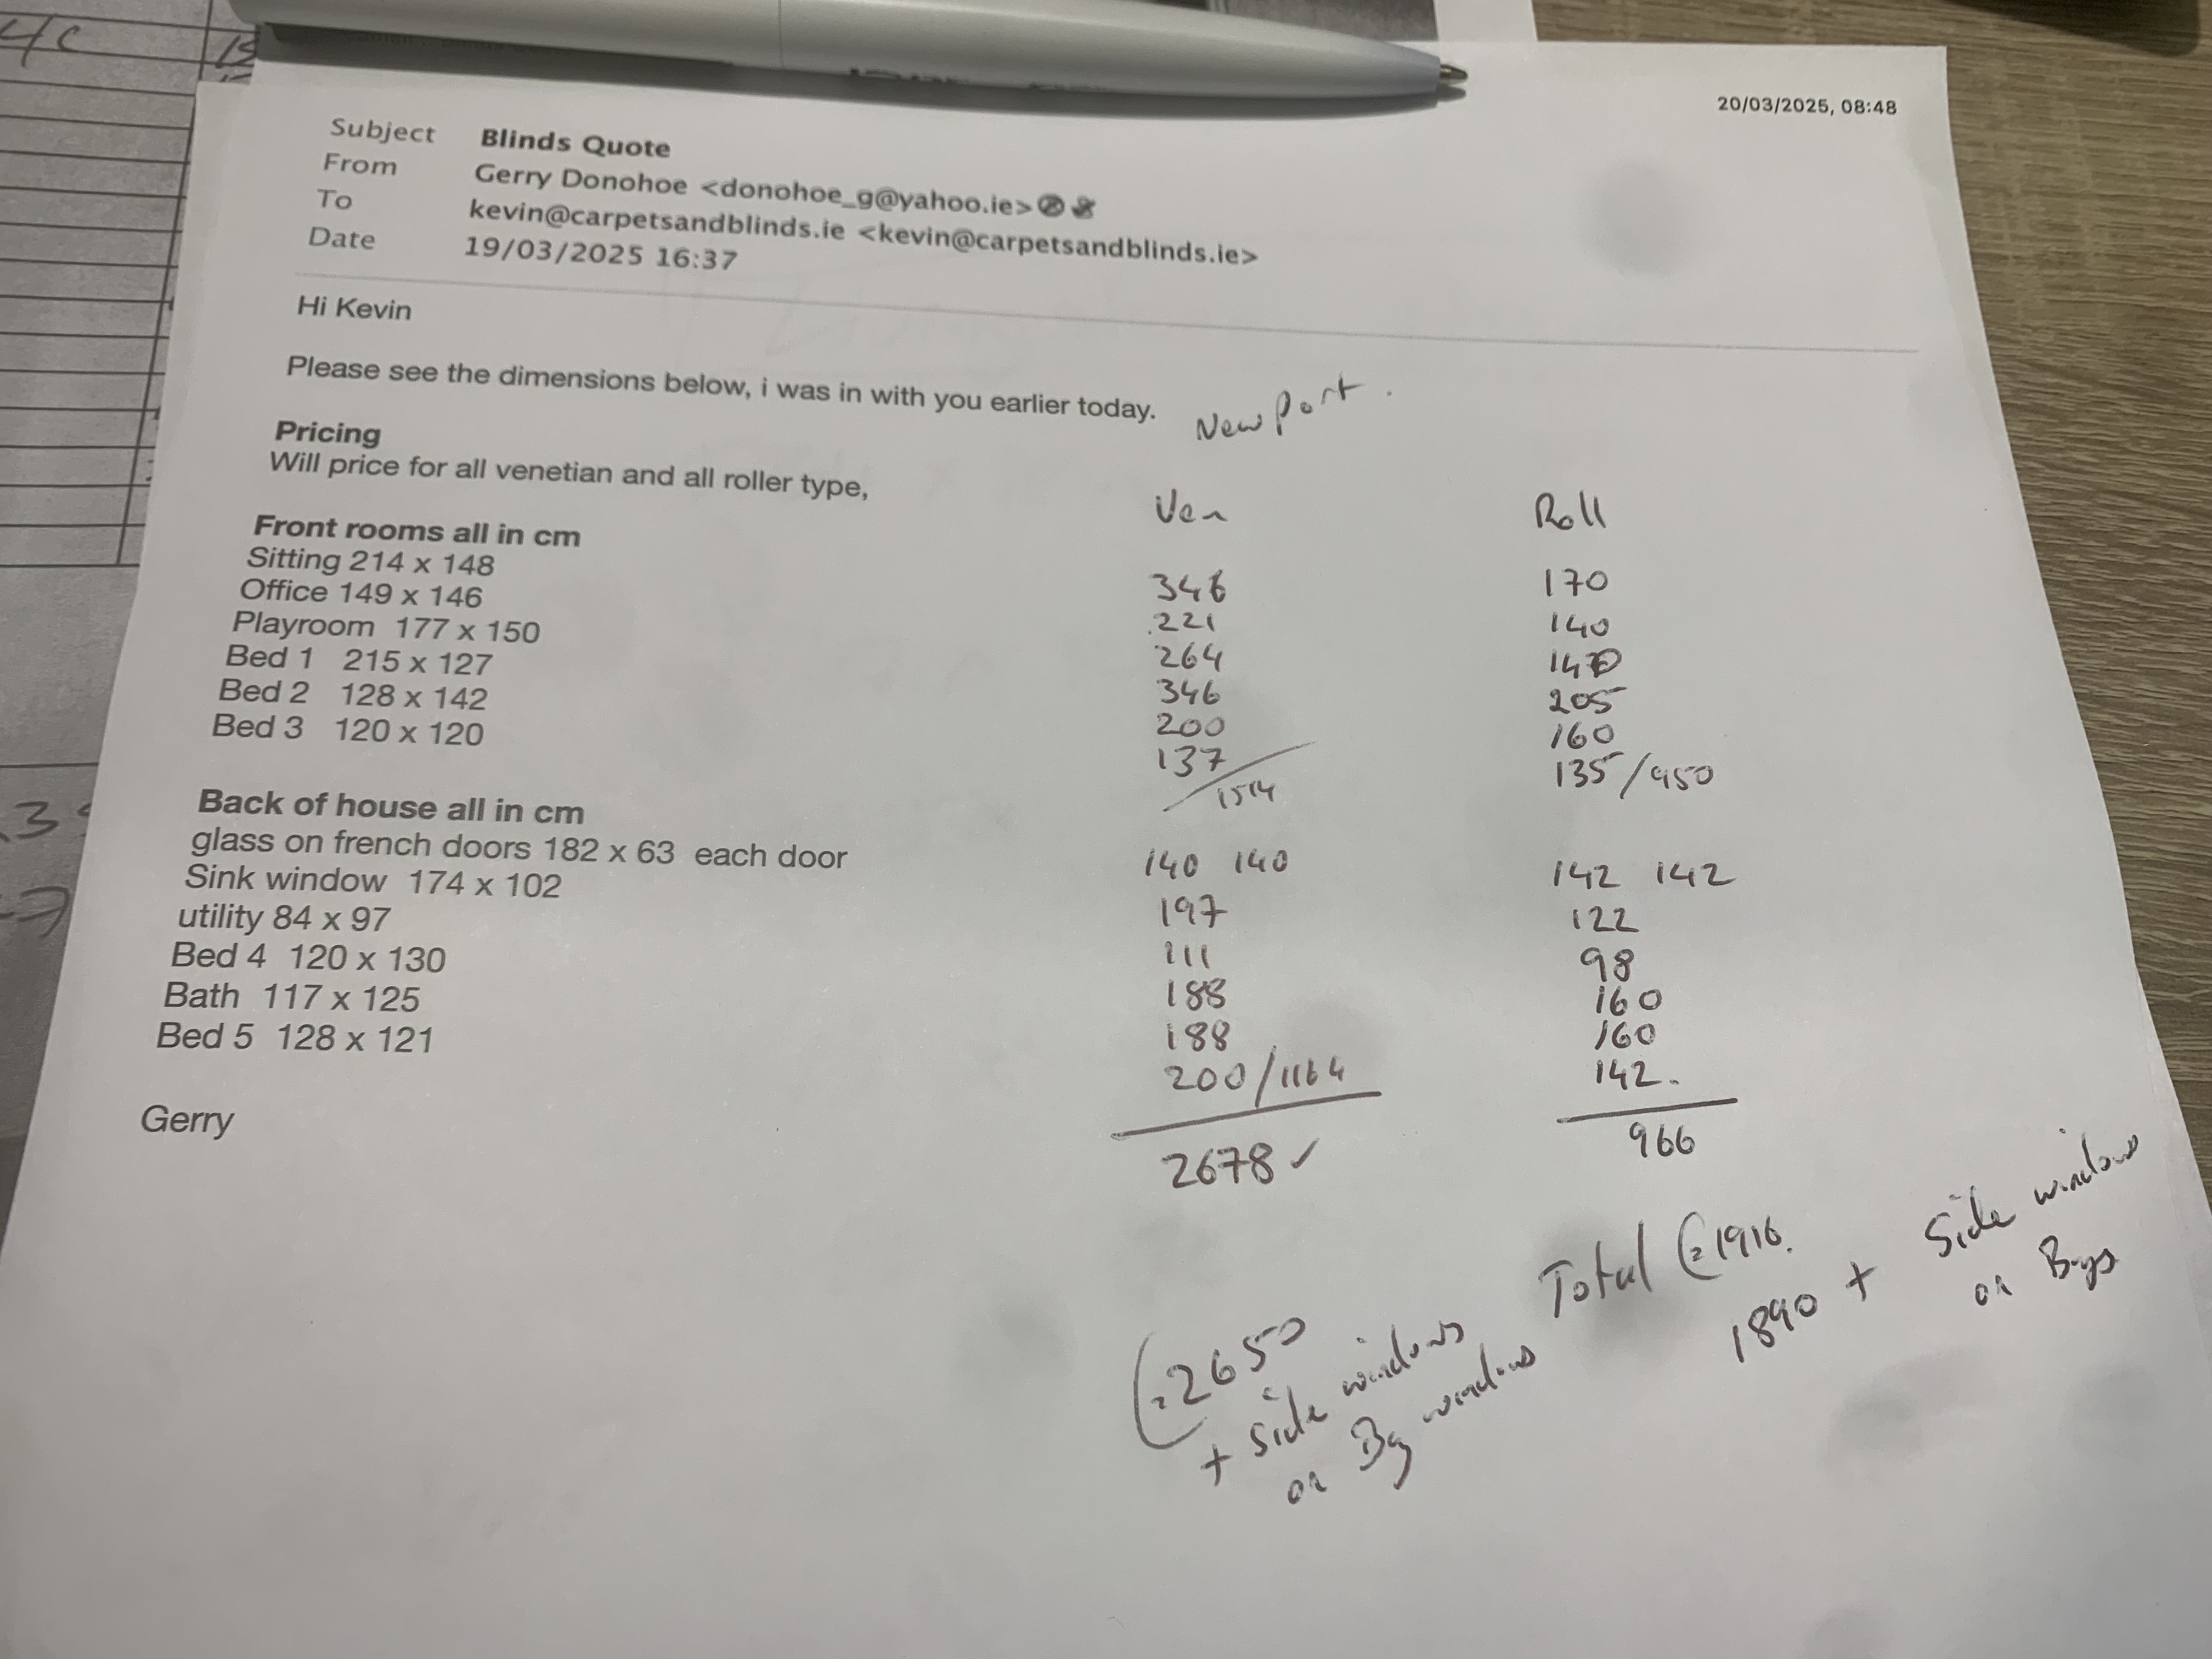 20/03/2025, 08:48
Subject Blinds Quote
From Gerry Donohoe <donohoe_g@yahoo.ie>
To kevin@carpetsandblinds.ie <kevin@carpetsandblinds.ie>
Date 19/03/2025 16:37
Hi Kevin
Please see the dimensions below, i was in with you earlier today. New Port.
Pricing
Will price for all venetian and all roller type,
Ven Roll
Front rooms all in cm
Sitting 214 x 148 346 170
Office 149 x 146 221 140
Playroom 177 x 150 264 140
Bed 1 215 x 127 346 205
Bed 2 128 x 142 200 160
Bed 3 120 x 120 137 / 1514 135 / 950
Back of house all in cm
glass on french doors 182 x 63 each door 140 140 142 142
Sink window 174 x 102 197 122
utility 84 x 97 111 98
Bed 4 120 x 130 188 160
Bath 117 x 125 188 160
Bed 5 128 x 121 200 / 1164 142.
Gerry
2678 ✓ 966
Total € 1916.
1890 + Side windows
on Bays
€ 2650
+ Side windows
on Bay windows